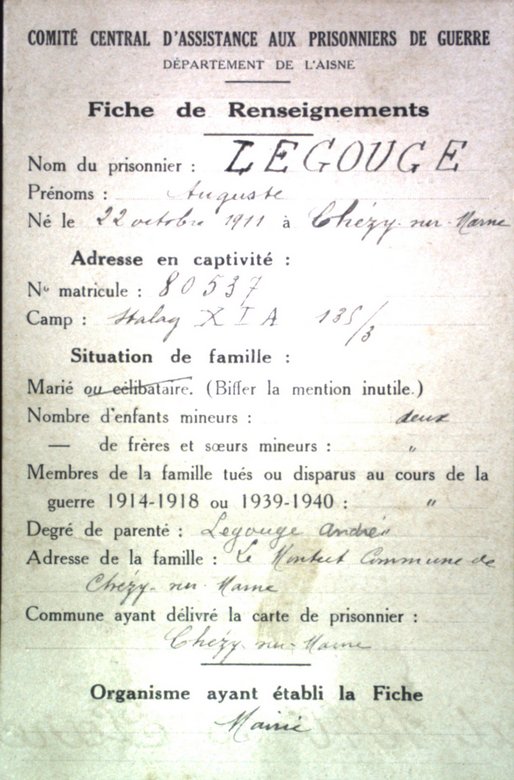 COMITÉ CENTRAL D'ASSISTANCE AUX PRISONNIERS DE GUERRE
DÉPARTEMENT DE L'AISNE
Fiche de Renseignements
Nom du prisonnier : LEGOUGE
Prénoms : Auguste
Né le 22 octobre 1911 à Chézy-sur-Marne
Adresse en captivité :
No matricule : 80537
Camp : Stalag XIA 135/3
Situation de famille :
Marié ou célibataire. (Biffer la mention inutile.)
Nombre d'enfants mineurs : deux
— de frères et sœurs mineurs : "
Membres de la famille tués ou disparus au cours de la
guerre 1914-1918 ou 1939-1940 : "
Degré de parenté : Legouge André
Adresse de la famille : Le Commune de
Chézy-sur-Marne
Commune ayant délivré la carte de prisonnier :
Chézy-sur-Marne
Organisme ayant établi la Fiche
Mairie